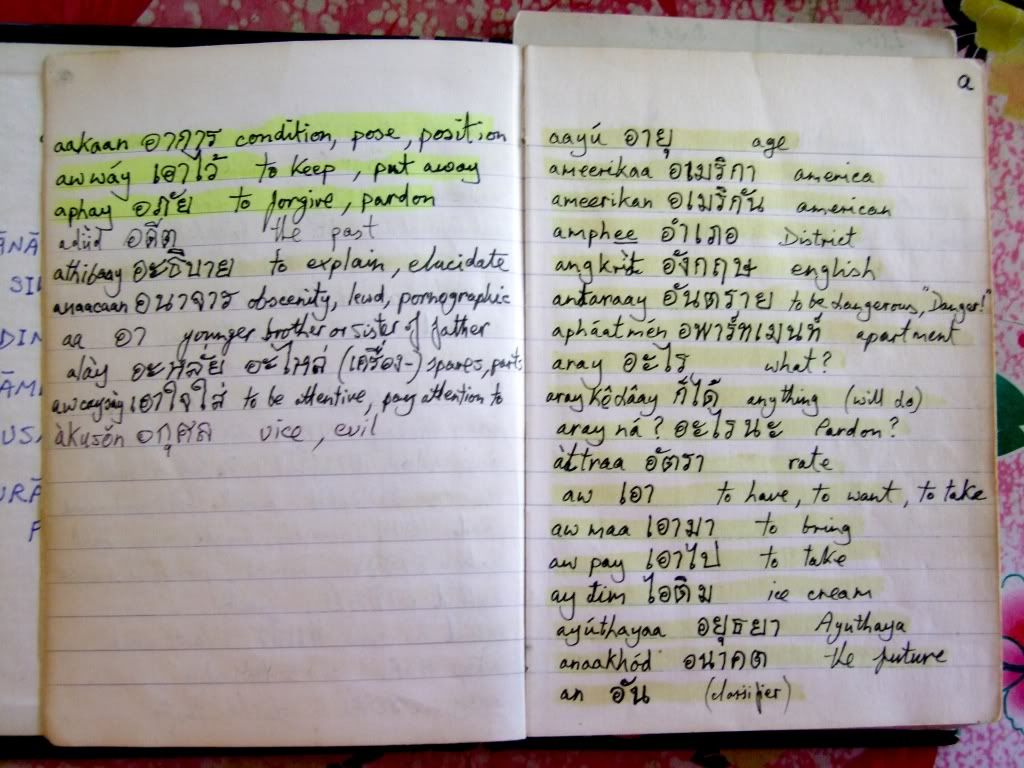 aakaan อาการ condition, pose, position
aw wáy เอาไว้ to keep, put away
aphay อภัย to forgive, pardon
adìid อดีต the past
athíbaay อะธิบาย to explain, elucidate
anaacaan อนาจาร obscenity, lewd, pornographic
aa อา younger brother or sister of father
alày อะหลัย อะไหล่ (เครื่อง-) spares, parts
aw cay sày เอาใจใส่ to be attentive, pay attention to
àkusǒn อกุศล vice, evil
a
aayú อายุ age
ameerikaa อเมริกา america
ameerikan อเมริกัน american
amphee อำเภอ District
angkrit อังกฤษ english
antaraay อันตราย to be dangerous, "Danger!"
apháatmén อพาร์ทเมนท์ apartment
aray อะไร what?
aray kêdâay ก็ได้ anything (will do)
aray ná? อะไรนะ Pardon?
àttraa อัตรา rate
aw เอา to have, to want, to take
aw maa เอามา to bring
aw pay เอาไป to take
ay tim ไอติม ice cream
ayúthayaa อยุธยา Ayuthaya
anaakhód อนาคต the future
an อัน (classifier)
ĀNĀ
SI
DIN
ĀM
USA
URĀ